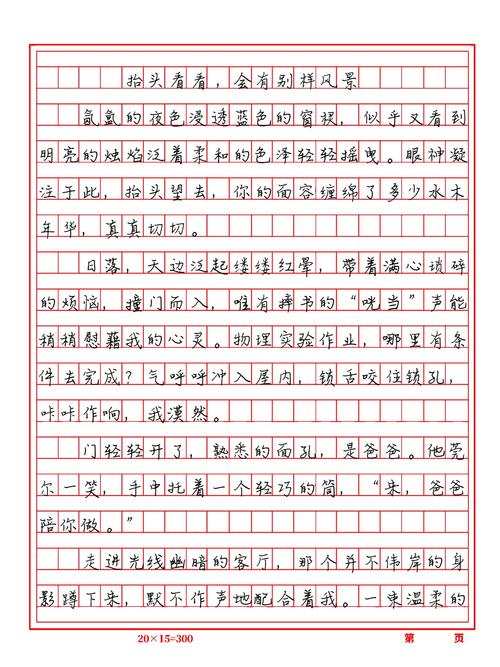 抬头看看，会有别样风景
氤氲的夜色浸透蓝色的窗棂，似乎又看到
明亮的烛焰泛着柔和的色泽轻轻摇曳。眼神凝
注于此，抬头望去，你的面容缠绵了多少水木
年华，真真切切。
日落，天边泛起缕缕红晕，带着满心琐碎
的烦恼，撞门而入，唯有摔书的“咣当”声能
稍稍慰藉我的心灵。物理实验作业，哪里有条
件去完成？气呼呼冲入屋内，锁舌咬住锁孔，
咔咔作响，我漠然。
门轻轻开了，熟悉的面孔，是爸爸。他莞
尔一笑，手中托着一个轻巧的筒，“来，爸爸
陪你做。”
走进光线幽暗的客厅，那个并不伟岸的身
影蹲下来，默不作声地配合着我。一束温柔的
20×15=300 第 页